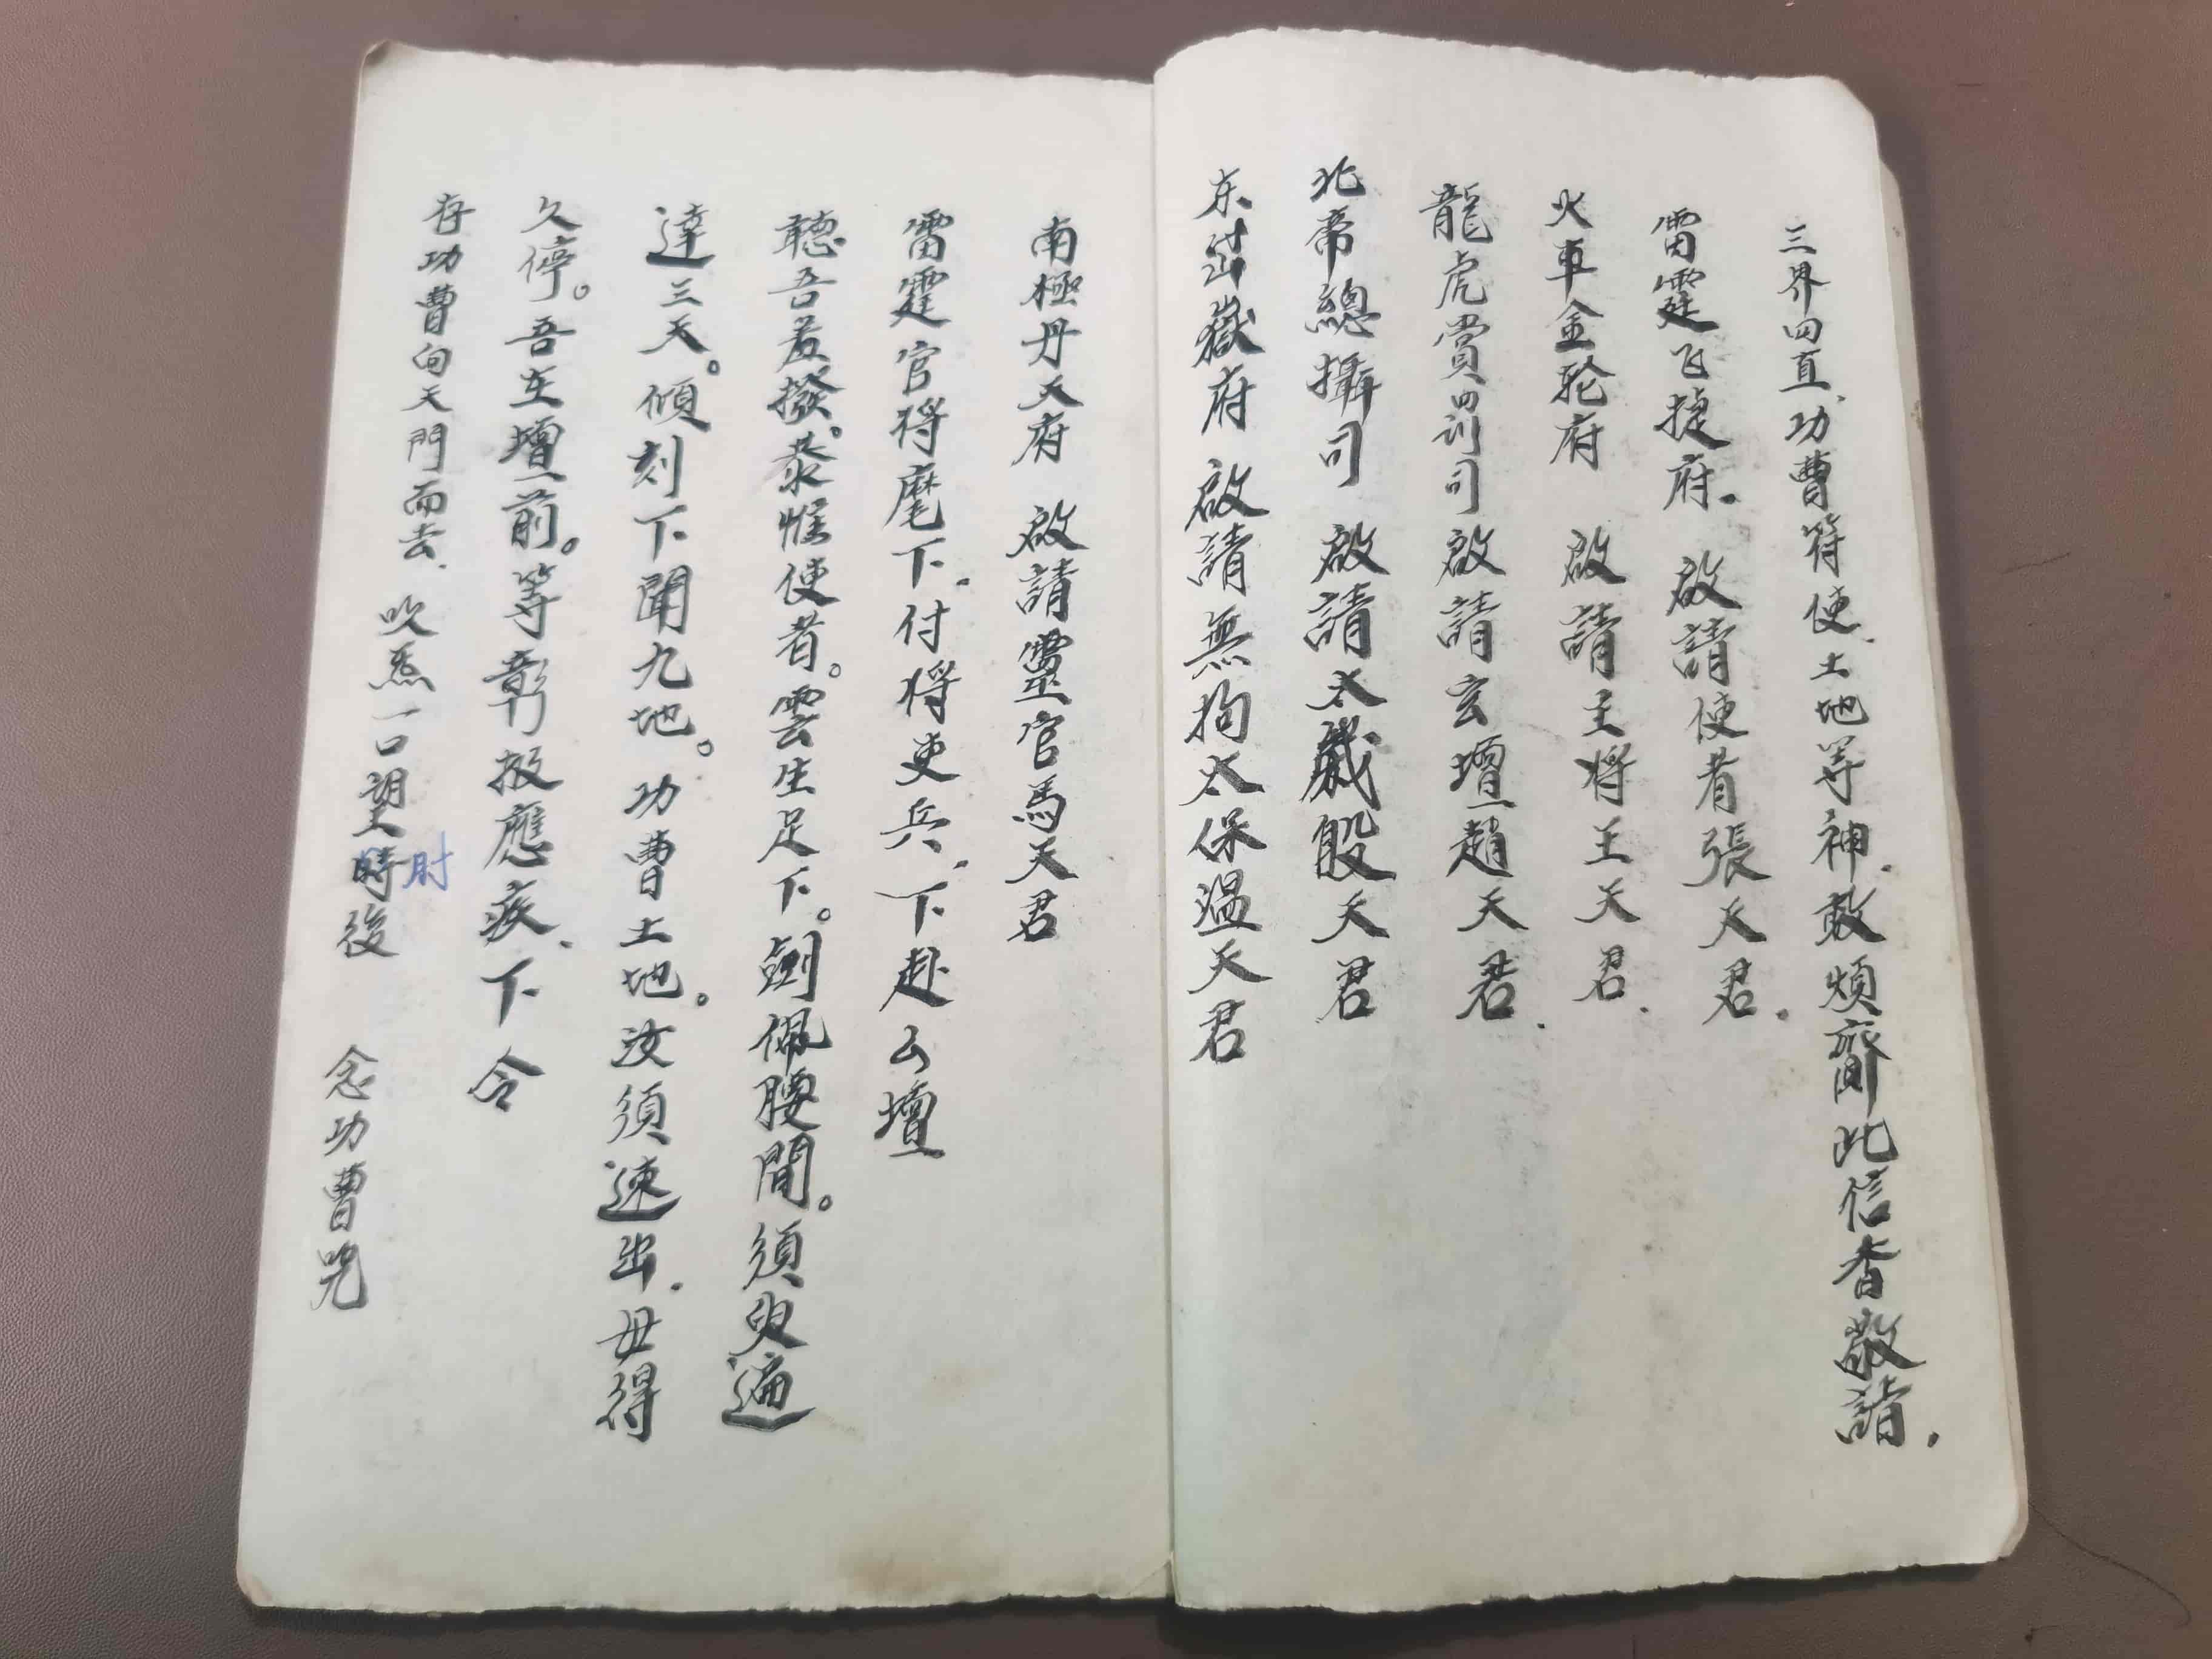 三界四直、功曹符使、土地等神、敢煩齎此信香敬請.
雷霆飞捷府. 啟請使者張天君.
火車金轮府 啟請主将王天君.
龍虎賞罰司啟請玄壇趙天君.
北帝總攝司 啟請太歲殷天君
东嶽府 啟請無拘太保温天君
南極丹天府 啟請靈官馬天君
雷霆官将麾下.付将吏兵.下赴公壇
聽吾差撥。泰惟使者。雲生足下。劍佩腰間。須臾遍
達三天。傾刻下聞九地。功曹土地。汝須速出.毋得
久停。吾在壇前。等彰报應疾、下令
存功曹向天門而去、吹炁一口望時後 念功曹咒
肘